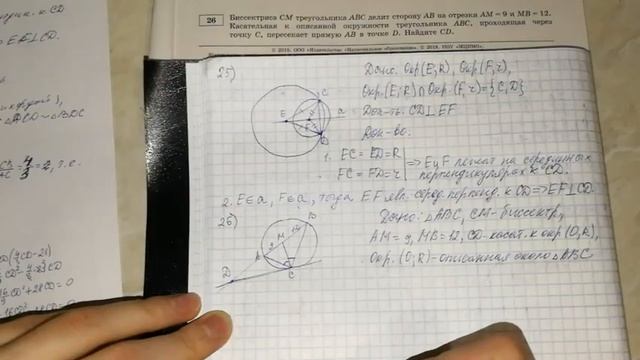 26
Биссектриса CM треугольника ABC делит сторону AB на отрезки AM = 9 и MB = 12.
Касательная к описанной окружности треугольника ABC, проходящая через
точку C, пересекает прямую AB в точке D. Найдите CD.
25)
Дано: Окр(E;R), Окр(F,r),
Окр.(E;R)∩Окр.(F,r)={C;D}
Док-ть: CD⊥EF
Док-во:
1. EC = ED = R
FC = FD = r
⇒ E и F лежат на серединных
перпендикулярах к CD.
2. E∈a, F∈a, тогда EF явл. серед. перпенд. к CD ⇒ EF⊥CD.
26)
Дано: △ABC, CM – биссектр,
AM = 9, MB = 12, CD – касат. к окр (O,R),
Окр. (O;R) – описанная около △ABC
E
C
F
D
a
B
M
A
9
12
D
C
к CD
EF⊥CD.
△ACD ~ △BDC